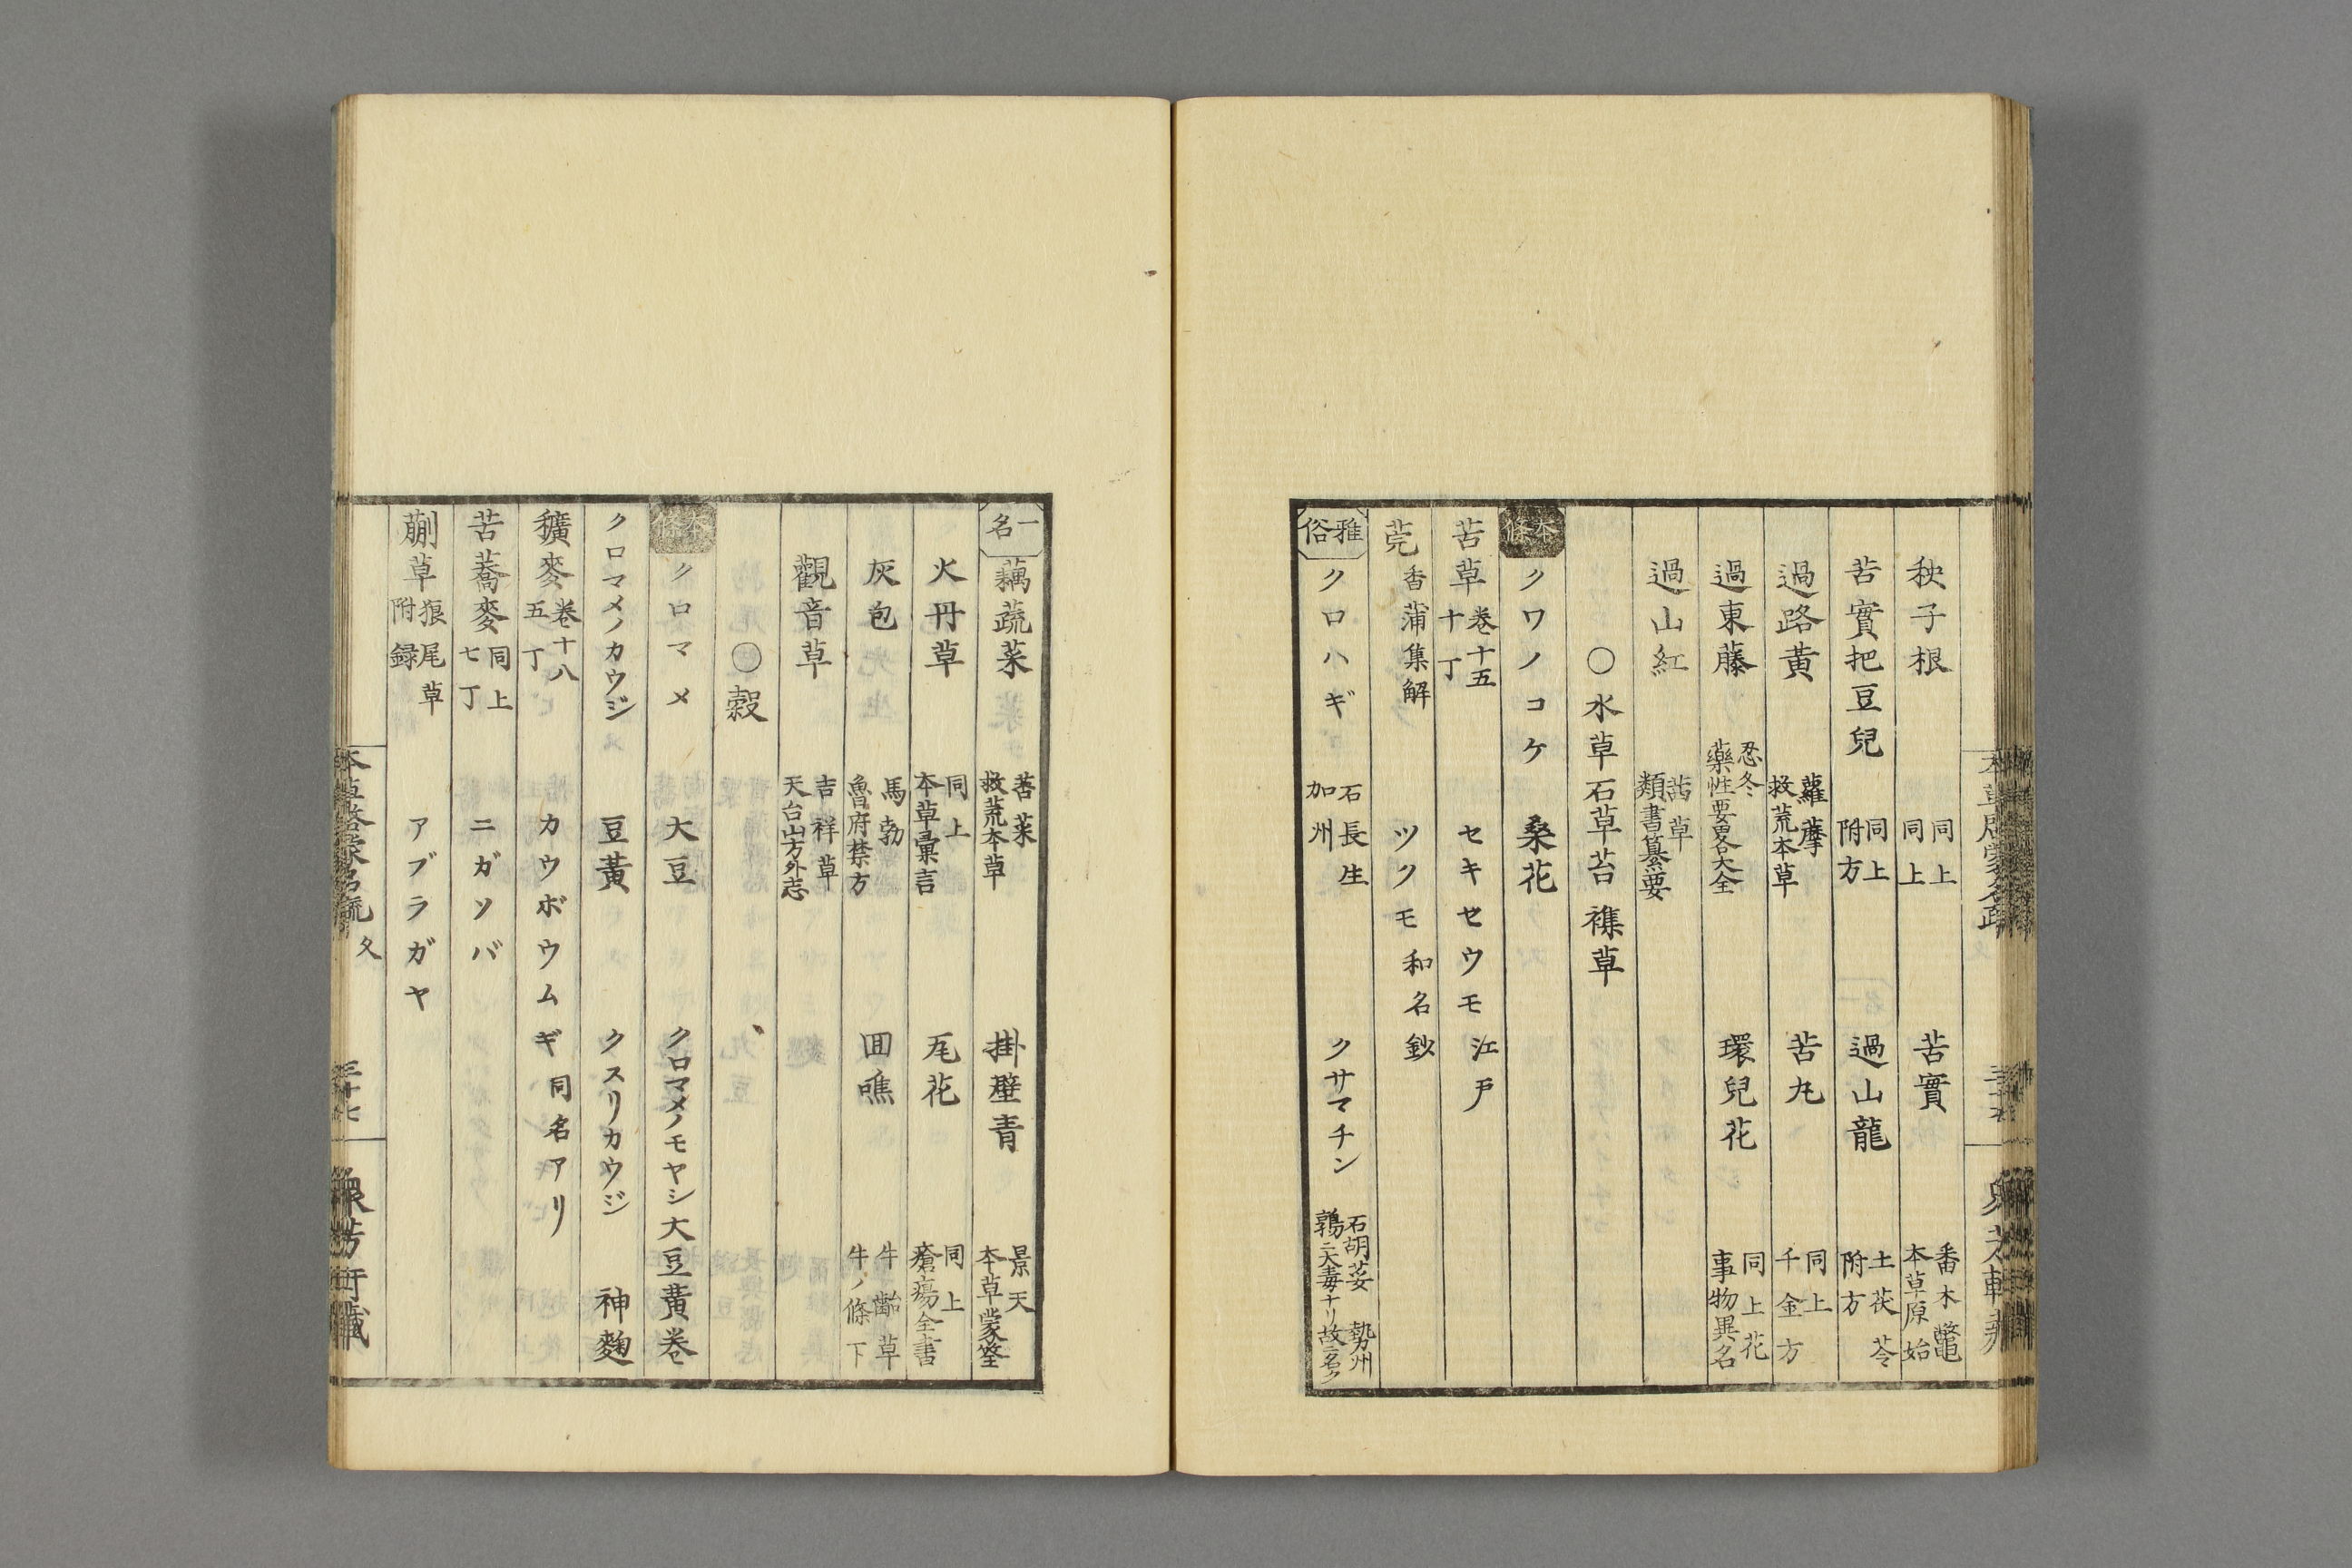 秧子根 同上 同上 苦實 番木鼈 本草原始
苦實把豆兒 同上 附方 過山龍 土茯苓 附方
過路黃 蘿藦 救荒本草 苦丸 同上 千金方
過東藤 忍冬 藥性要畧大全 環兒花 同上花 事物異名
過山紅 茜草 類書纂要
〇水草石草苔襍草
本條 クワノコケ 桑花
苦草 巻十五 十丁 セキセウモ 江戸
莞 香蒲集解 ツクモ 和名鈔
雅俗 クロハギ 石長生 加州 クサマチン 石胡荽 勢州 鶏ニ大毒ナリ故ニ名ク
一名 藕蔬菜 苦菜 救荒本草 掛壁青 景天 本草蒙筌
火丹草 同上 本草彙言 瓦花 同上 瘡瘍全書
灰包 馬勃 魯府禁方 囬噍 牛齝草 牛ノ條下
觀音草 吉祥草 天台山方外志
〇穀
本條 クロマメ 大豆 クロマメノモヤシ 大豆黃巻
クロマメノカウジ 豆黃 クスリカウジ 神麴
穬麥 巻十八 五丁 カウボウムギ 同名アリ
苦蕎麥 同上 七丁 ニガソバ
蒯草 狼尾草 附録 アブラガヤ
本草啓蒙名疏 久 三十七 衆芳軒藏